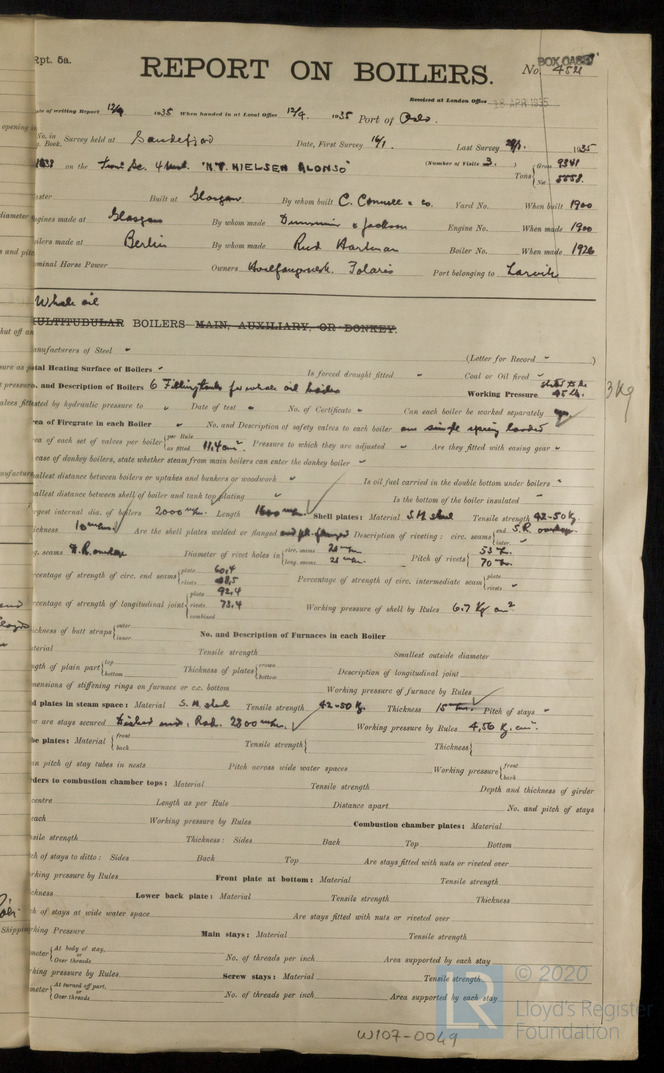 Rpt. 5a.
REPORT ON BOILERS.
No. 4521
Received at London Office 18 APR 1935
Date of writing Report 12/4 1935 When handed in at Local Office 12/4 1935 Port of Oslo.
No. in Book. Survey held at Sandefjord Date, First Survey 16/1 Last Survey 1935
on the "N.T. NIELSEN ALONSO" (Number of Visits 3.) Tons Gross 9341
Net 5558.
Built at Glasgow By whom built C. Connell & Co. Yard No. When built 1900
Engines made at Glasgow By whom made Dunsmuir & Jackson Engine No. When made 1900
Boilers made at Berlin By whom made Rud Hartman Boiler No. When made 1926
Nominal Horse Power Owners Hvalfangersk. Polaris Port belonging to Larvik
Whale oil
MULTITUBULAR BOILERS MAIN, AUXILIARY, OR DONKEY.
Manufacturers of Steel " (Letter for Record " )
Total Heating Surface of Boilers " Is forced draught fitted " Coal or Oil fired "
No. and Description of Boilers 6 for whale oil boilers Working Pressure stated to be 45 lb.
3 Kg
tested by hydraulic pressure to " Date of test " No. of Certificate " Can each boiler be worked separately yes
Area of Firegrate in each Boiler " No. and Description of safety valves to each boiler one single spring loaded
Area of each set of valves per boiler per Rule
as fitted 11,4 cm². Pressure to which they are adjusted " Are they fitted with easing gear "
In case of donkey boilers, state whether steam from main boilers can enter the donkey boiler "
Smallest distance between boilers or uptakes and bunkers or woodwork " Is oil fuel carried in the double bottom under boilers "
Smallest distance between shell of boiler and tank top plating " Is the bottom of the boiler insulated "
Largest internal dia. of boilers 2000 m/m. Length 1600 m/m. Shell plates: Material S.M. steel Tensile strength 42-50 Kg.
Thickness 10 m/m. Are the shell plates welded or flanged Description of riveting: circ. seams end S.R. overlap.
inter. "
long. seams D.R. overlap Diameter of rivet holes in circ. seams
long. seams Pitch of rivets 53
70
Percentage of strength of circ. end seams plate 60,4
rivets 48,5 Percentage of strength of circ. intermediate seam plate
rivets "
Percentage of strength of longitudinal joint plate
rivets 73,4
combined Working pressure of shell by Rules 6.7 Kg cm²
Thickness of butt straps outer
inner No. and Description of Furnaces in each Boiler
Material Tensile strength Smallest outside diameter
Length of plain part top
bottom Thickness of plates crown
bottom Description of longitudinal joint
Dimensions of stiffening rings on furnace or c.c. bottom Working pressure of furnace by Rules
End plates in steam space: Material S.M. steel Tensile strength 42-50 Kg. Thickness 15 m/m. Pitch of stays "
How are stays secured Dished end. Rad. 2800 m/m. Working pressure by Rules 4,56 Kg. cm².
Tube plates: Material front
back Tensile strength Thickness
Mean pitch of stay tubes in nests Pitch across wide water spaces Working pressure front
back
Girders to combustion chamber tops: Material Tensile strength Depth and thickness of girder
centre Length as per Rule Distance apart No. and pitch of stays
each Working pressure by Rules Combustion chamber plates: Material
Tensile strength Thickness: Sides Back Top Bottom
Pitch of stays to ditto: Sides Back Top Are stays fitted with nuts or riveted over
Working pressure by Rules Front plate at bottom: Material Tensile strength
Thickness Lower back plate: Material Tensile strength Thickness
Pitch of stays at wide water space Are stays fitted with nuts or riveted over
Working Pressure Main stays: Material Tensile strength
Diameter At body of stay,
or
Over threads No. of threads per inch Area supported by each stay
Working pressure by Rules Screw stays: Material Tensile strength
Diameter At turned off part,
or
Over threads No. of threads per inch Area supported by each stay
W107-0049
LR © 2020
Lloyd's Register
Foundation